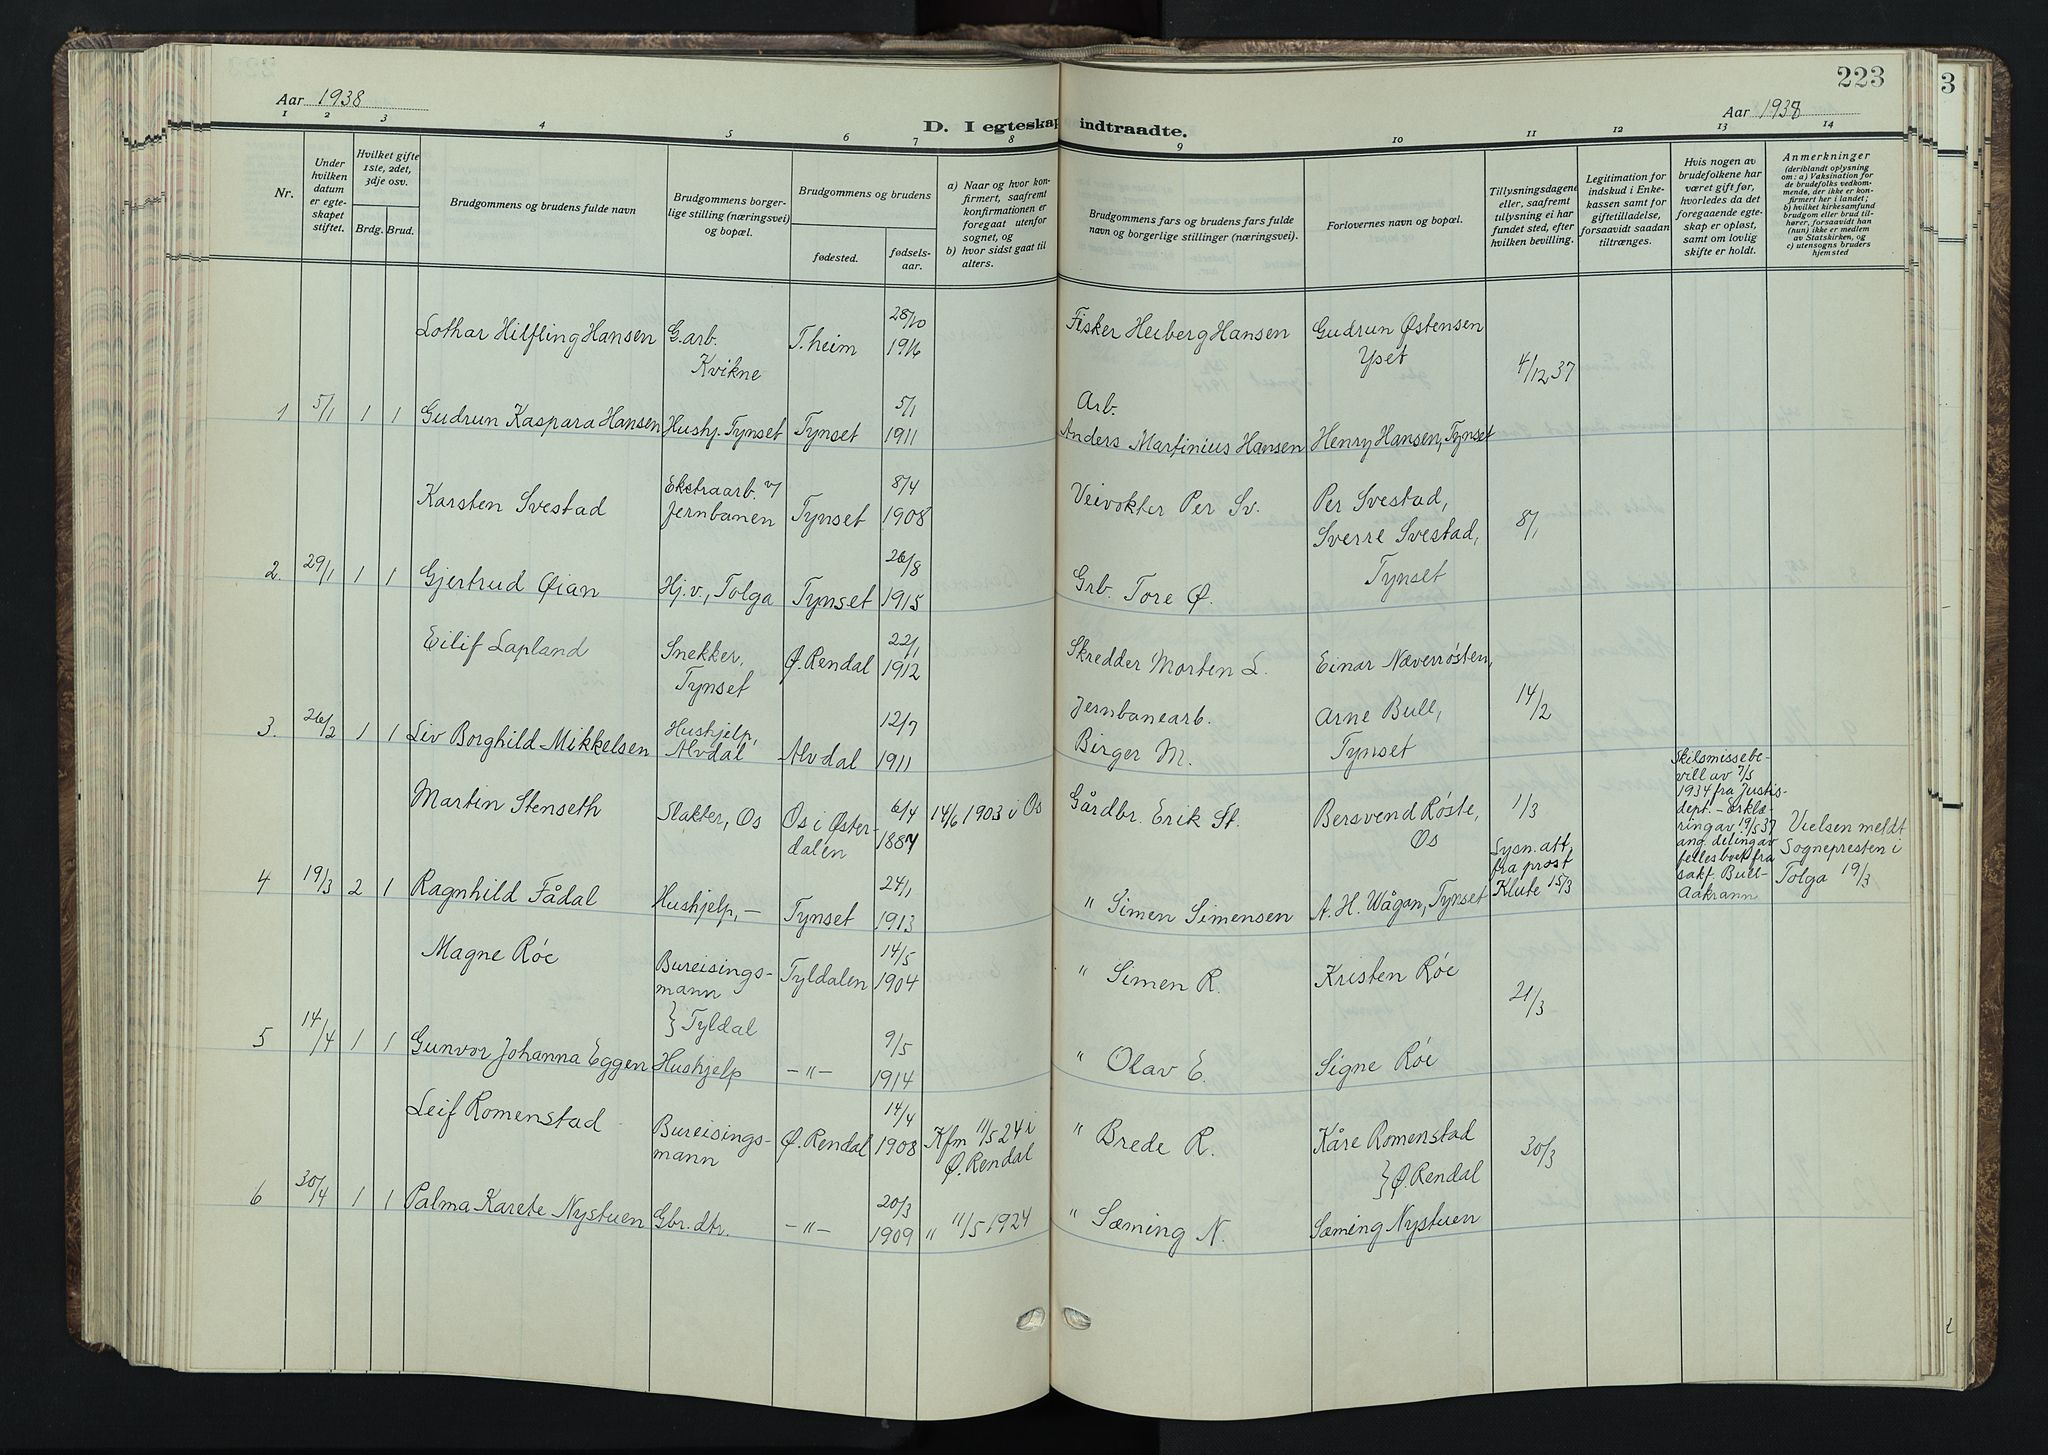 223
3
Aar 1938
Aar 1938
D. I egteskap indtraadte.
1 2 3 4 5 6 7 8 9 10 11 12 13 14
Nr.
Under
hvilken
datum
er egte-
skapet
stiftet.
Hvilket gifte
1ste, 2det,
3dje osv.
Brdg. Brud.
Brudgommens og brudens fulde navn
Brudgommens borger-
lige stilling (næringsvei)
og bopæl.
Brudgommens og brudens
fødested.
fødsels-
aar.
a) Naar og hvor kon-
firmert, saafremt
konfirmationen er
foregaat utenfor
sognet, og
b) hvor sidst gaat til
alters.
Brudgommens fars og brudens fars fulde
navn og borgerlige stillinger (næringsvei).
Forlovernes navn og bopæl.
Tillysningsdagene
eller, saafremt
tillysning ei har
fundet sted, efter
hvilken bevilling.
Legitimation for
indskud i Enke-
kassen samt for
giftetilladelse,
forsaavidt saadan
tiltrænges.
Hvis nogen av
brudefolkene har
været gift før,
hvorledes da det
foregaaende egte-
skap er opløst,
samt om lovlig
skifte er holdt.
Anmerkninger
(deriblandt oplysning
om: a) Vaksination for
de brudefolks vedkom-
mende, der ikke er kon-
firmert her i landet;
b) hvilket kirkesamfund
brudgom eller brud til-
hører, forsaavidt han
(hun) ikke er medlem
av Statskirken, og
c) utensogns bruders
hjemsted
Lothar Hilfling Hansen G.arb. Kvikne T.heim 28/10 1916 Fisker Heiberg Hansen Gudrun Østensen Yset 4/12 37
1 5/1 1 1 Gudrun Kaspara Hansen Hushj. Tynset Tynset 5/1 1911 Arb. Anders Martinius Hansen Henry Hansen, Tynset
Karsten Svestad Ekstraarb. v/ Jernbanen Tynset 8/4 1908 Veivokter Per Sv. Per Svestad, Sverre Svestad, Tynset 8/1
2. 29/1 1 1 Gjertrud Øian Hj.v., Tolga Tynset 26/8 1915 Grb. Tore Ø.
Eilif Lapland Snekker, Tynset Ø. Rendal 22/1 1912 Skredder Morten L. Einar Næverrøsten, 14/2
3. 26/2 1 1 Liv Borghild Mikkelsen Hushjelp, Alvdal Alvdal 12/7 1911 Jernbanearb. Birger M. Arne Bull, Tynset
Martin Stenseth Slakter, Os Os i Øster-dalen 6/4 1887 14/6 1903 i Os Gårdbr. Erik St. Bersvend Røste, Os 1/3
4 19/3 2 1 Ragnhild Fådal Hushjelp, — Tynset 24/1 1913 " Simen Simensen A. H. Wågan, Tynset
Lysn. att.
fra prost
Klute 15/3
Skilsmissebe-
vill av 7/5
1934 fra Justis-
dept. - Erklæ-
ring av 19/5 37
ang. deling av
felles boet fra
sakf. Bull-
Aakrann
Vielsen meldt
Sognepresten i
Tolga 19/3
Magne Røe Bureisings-mann Tyldalen 14/5 1904 " Simen R. Kristen Røe 21/3
} Tyldal
5 14/4 1 1 Gunvor Johanna Eggen Hushjelp —"— 9/5 1914 " Olav E. Signe Røe
Leif Romenstad Bureisings-mann Ø. Rendal 14/4 1908 Kfm 11/5 24 i Ø. Rendal " Brede R. Kåre Romenstad 30/3
} Ø. Rendal
6 30/4 1 1 Palma Karete Nystuen Gbr. dtr. —"— 20/3 1909 " 11/5 1924 " Sæming N. Sæming Nystuen